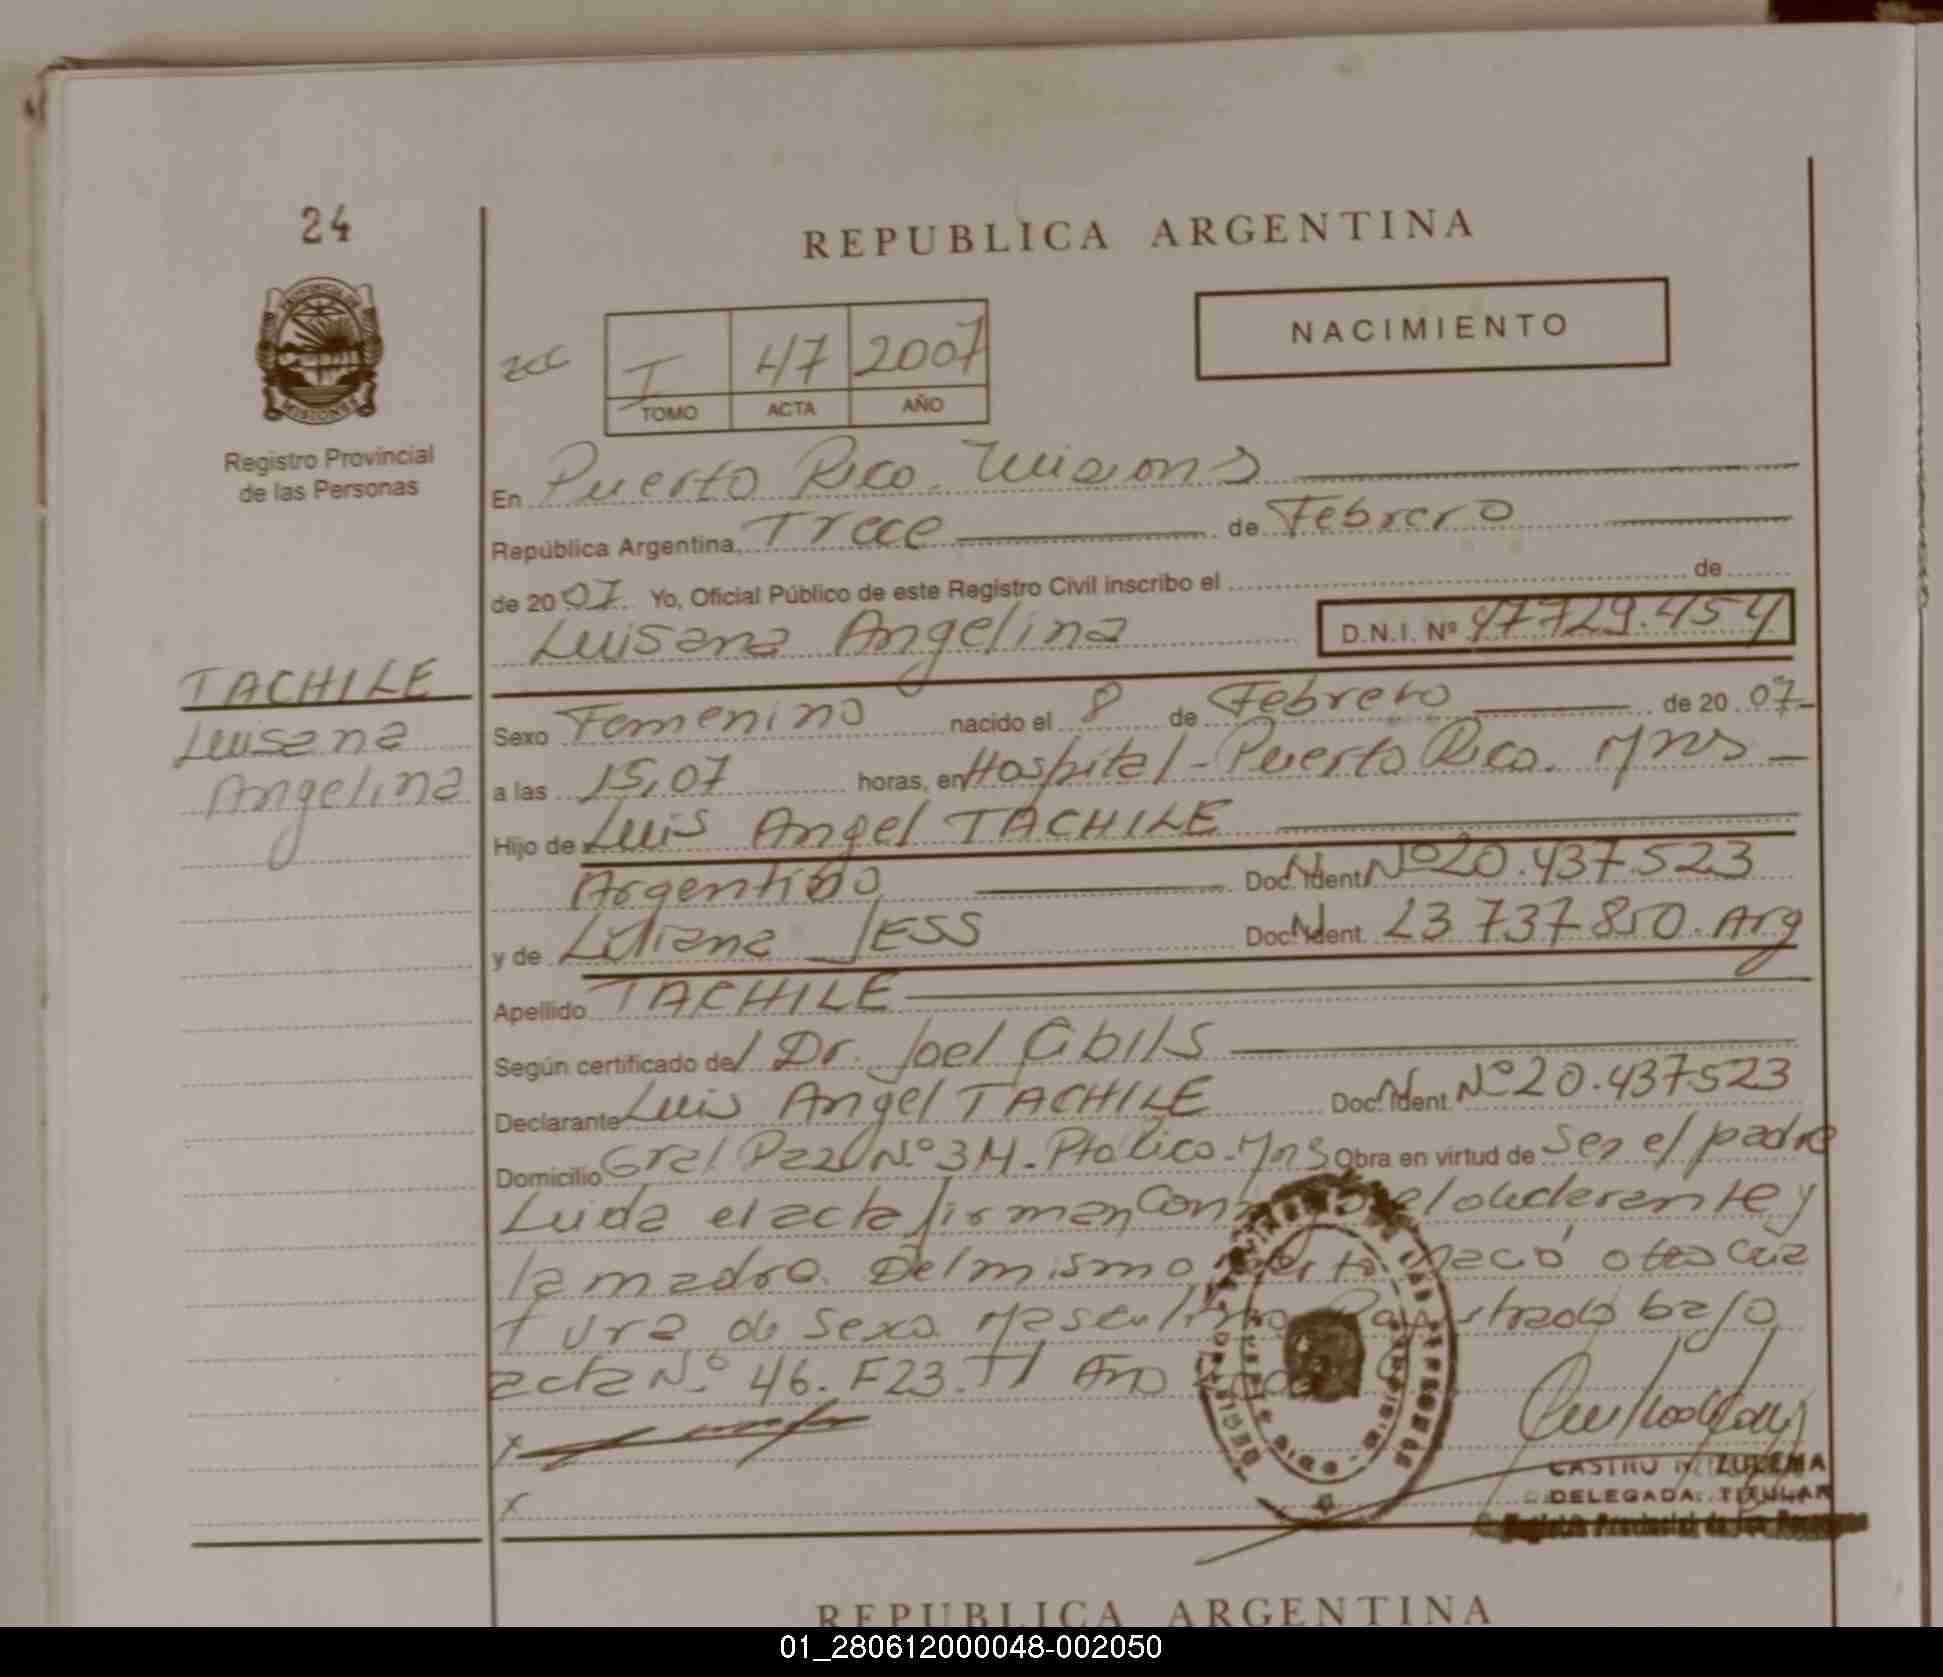 24
REPUBLICA ARGENTINA
NACIMIENTO
I 47 2007
TOMO ACTA AÑO
PROVINCIA DE
MISIONES
Registro Provincial
de las Personas
En Puerto Rico. Misiones
República Argentina, Trece de Febrero
de 2007 Yo, Oficial Público de este Registro Civil inscribo el de
Luisana Angelina D.N.I. Nº 47729.454
TACHILE
Luisana
Angelina
Sexo Femenino nacido el 8 de Febrero de 2007
a las 15,07 horas, en Hospital - Puerto Rico. Mnes
Hijo de Luis Angel TACHILE
Argentino Doc. Ident. Nº 20.437.523
y de Liliana JESS Doc. Ident. 23 737 850. Arg
Apellido TACHILE
Según certificado del Dr. Joel
Declarante Luis Angel TACHILE Doc. Ident. Nº 20.437523
Domicilio Gral Paz Nº Pto Rico. Mns Obra en virtud de Ser el padre
Leida el acta firman el declarante y
la madre. Del mismo nació otra cria
tura de Sexo Masculino bajo
acta Nº 46. F23. TI Año
x
x
CASTRO ZULEMA
DELEGADA TITULAR
Registro Provincial de las Personas
REPUBLICA ARGENTINA
01_280612000048-002050